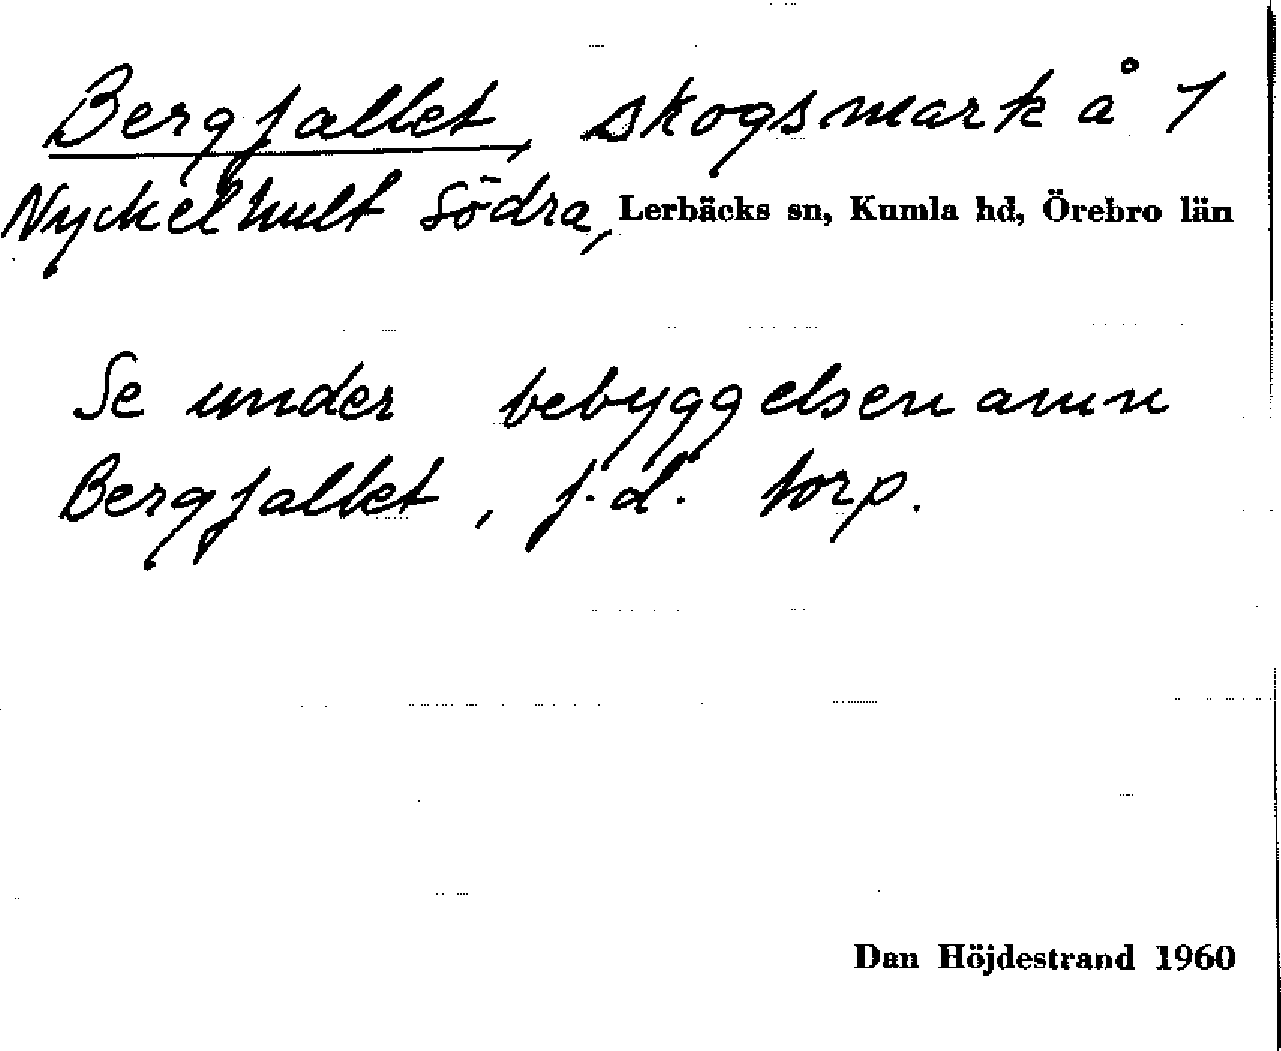 Bergfallet, skogsmark å 1
Nyckelhult Södra, Lerbäcks sn, Kumla hd, Örebro län
Se under bebyggelsenamn
Bergfallet, f.d. torp.
Dan Höjdestrand 1960